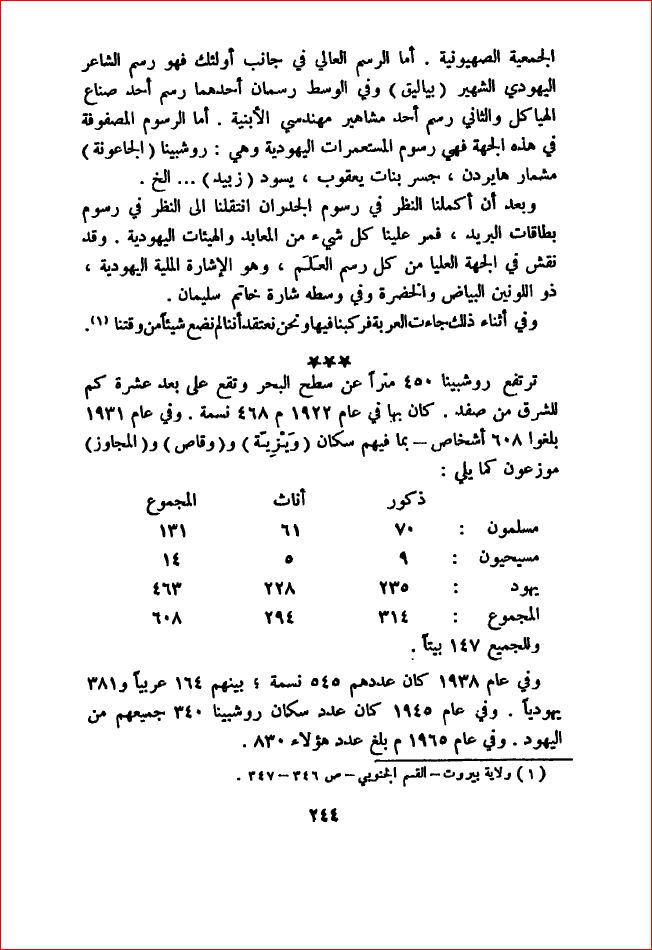 الجمعية الصهيونية . أما الرسم العالي في جانب أولئك فهو رسم الشاعر
اليهودي الشهير ( بياليق ) وفي الوسط رسمان أحدهما رسم أحد صناع
الهياكل والثاني رسم أحد مشاهير مهندسي الأبنية . أما الرسوم المصفوفة
في هذه الجهة فهي رسوم المستعمرات اليهودية وهي : روشبينا ( الجاعونة )
مشمار هايردن ، جسر بنات يعقوب ، يسود ( زبيد ) ... الخ .
وبعد أن أكملنا النظر في رسوم الجدران انتقلنا الى النظر في رسوم
بطاقات البريد ، فمر علينا كل شيء من المعابد والهيئات اليهودية . وقد
نقش في الجهة العليا من كل رسم العَلَم ، وهو الإشارة الملية اليهودية ،
ذو اللونين البياض والخضرة وفي وسطه شارة خاتم سليمان .
وفي أثناء ذلك جاءت العربة فركبنا فيها ونحن نعتقد أننا لم نضع شيئاً من وقتنا (١).
***
ترتفع روشبينا ٤٥٠ متراً عن سطح البحر وتقع على بعد عشرة كم
للشرق من صفد . كان بها في عام ١٩٢٢ م ٤٦٨ نسمة . وفي عام ١٩٣١
بلغوا ٦٠٨ أشخاص – بما فيهم سكان ( وَيْزِيّة ) و( وقاص ) و( المجاوز )
موزعون كما يلي :
ذكور أناث المجموع
مسلمون : ٧٠ ٦١ ١٣١
مسيحيون : ٩ ٥ ١٤
يهود : ٢٣٥ ٢٢٨ ٤٦٣
المجموع : ٣١٤ ٢٩٤ ٦٠٨
وللجميع ١٤٧ بيتاً .
وفي عام ١٩٣٨ كان عددهم ٥٤٥ نسمة ؛ بينهم ١٦٤ عربياً و٣٨١
يهودياً . وفي عام ١٩٤٥ كان عدد سكان روشبينا ٣٤٠ جميعهم من
اليهود . وفي عام ١٩٦٥ م بلغ عدد هؤلاء ٨٣٠ .
( ١ ) ولاية بيروت – القسم الجنوبي – ص ٣٤٦ – ٣٤٧ .
٢٤٤